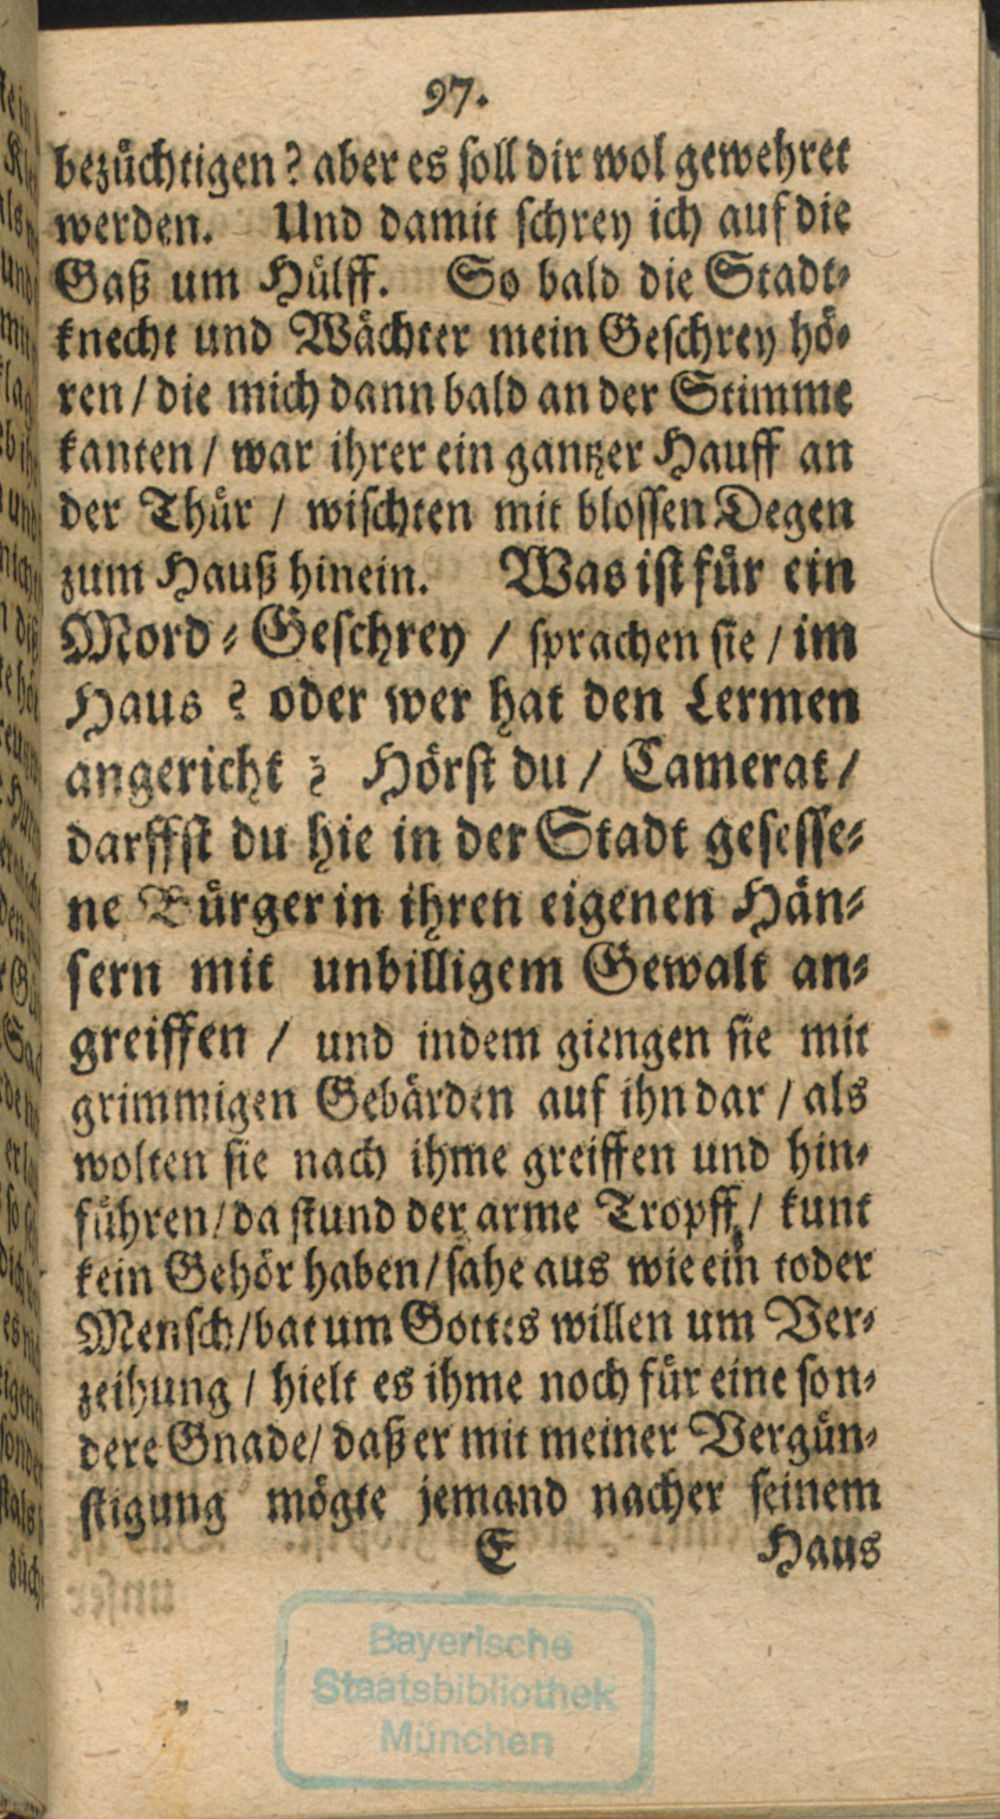 97.
bezüchtigen? aber es soll dir wol gewehret
werden. Und damit schrey ich auf die
Gaß um Hülff. So bald die Stadt-
knecht und Wächter mein Geschrey hö-
ren / die mich dann bald an der Stimme
kanten / war ihrer ein gantzer Hauff an
der Thür / wischten mit blossen Degen
zum Hauß hinein. Was ist für ein
Mord-Geschrey / sprachen sie / im
Haus? oder wer hat den Lermen
angericht? Hörst du / Camerat /
darffst du hie in der Stadt gesesse-
ne Bürger in ihren eigenen Hän-
sern mit unbilligem Gewalt an-
greiffen / und indem giengen sie mit
grimmigen Gebärden auf ihn dar / als
wolten sie nach ihme greiffen und hin-
führen / da stund der arme Tropff / kunt
kein Gehör haben / sahe aus wie ein toder
Mensch / bat um Gottes willen um Ver-
zeihung / hielt es ihme noch für eine son-
dere Gnade / daß er mit meiner Vergün-
stigung mögte jemand nacher seinem
E Haus
Bayerische
Staatsbibliothek
München